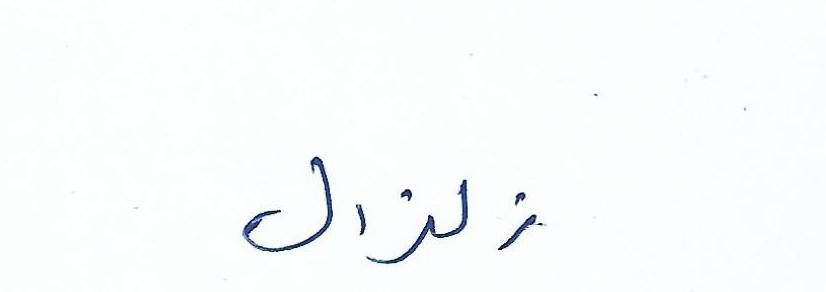 زلزال